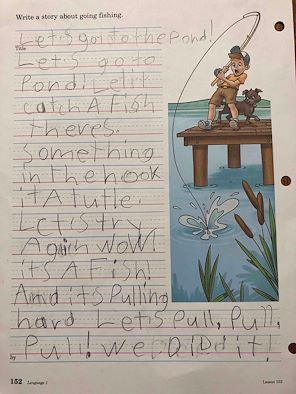 Write a story about going fishing.
Let's go to the pond!
Title
Let's go to
Pond! Let it
catch A fish
theres.
Something
in the hook
it A tutle.
Let's try
Again WOW!
it's A Fish!
And it's Pulling
hard Let's Pull, Pull,
Pull! We DiDd it!
by
152 Language 1
Lesson 102